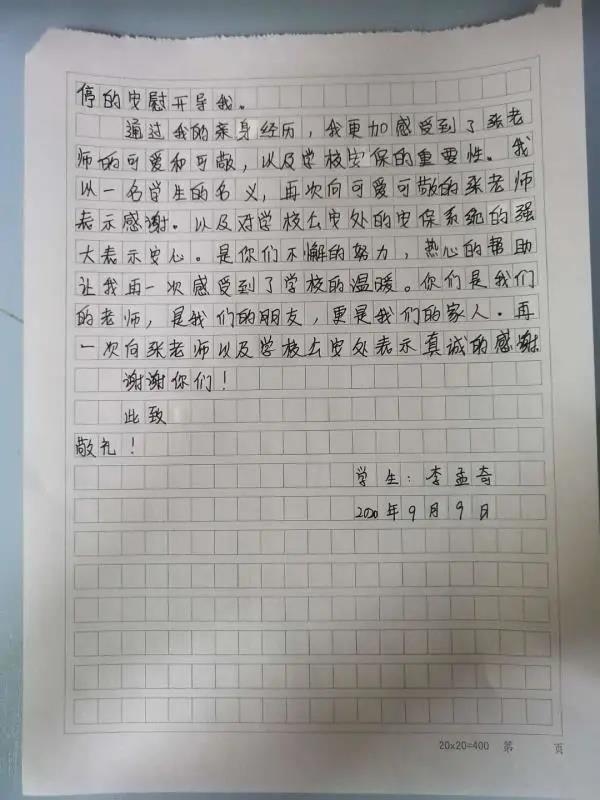 停的安慰开导我。
通过我的亲身经历，我更加感受到了张老
师的可爱和可敬，以及学校安保的重要性。我
以一名学生的名义，再次向可爱可敬的张老师
表示感谢。以及对学校公安处的安保系统的强
大表示安心。是你们不懈的努力，热心的帮助
让我再一次感受到了学校的温暖。你们是我们
的老师，是我们的朋友，更是我们的家人。再
一次向张老师以及学校公安处表示真诚的感谢
谢谢你们！
此致
敬礼！
学生：李孟奇
2020年9月9日
20×20=400 第 页